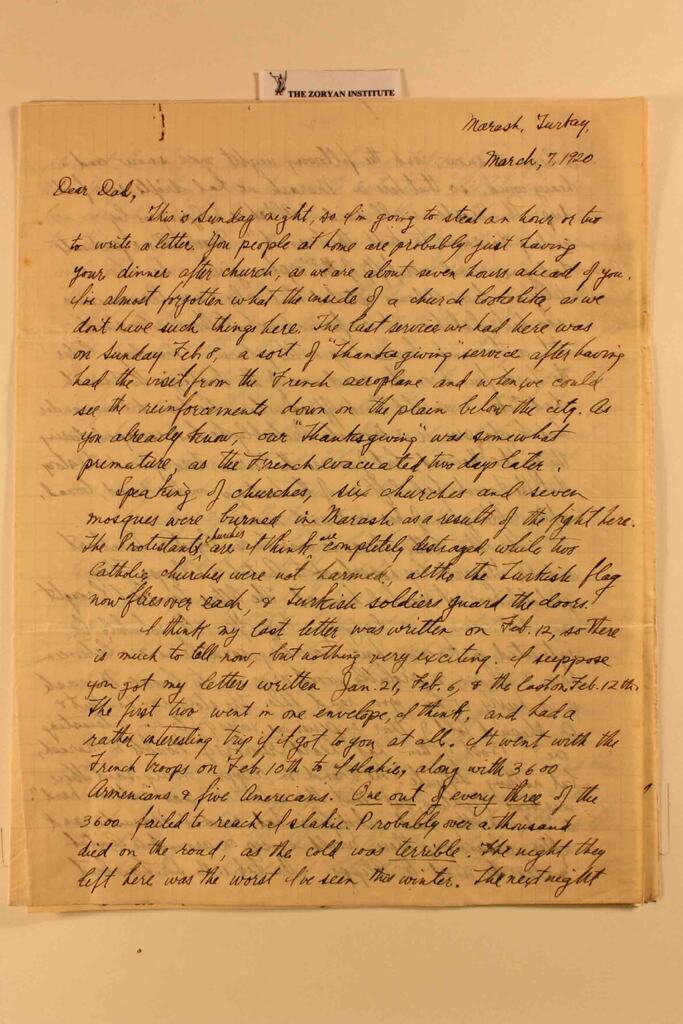 THE ZORYAN INSTITUTE
Marash, Turkey,
March, 7, 1920
Dear Dad,
This is Sunday night, so I'm going to steal an hour or two
to write a letter. You people at home are probably just having
your dinner after church, as we are about seven hours ahead of you.
I've almost forgotten what the inside of a church looks like, as we
don't have such things here. The last service we had here was
on Sunday Feb 8, a sort of "Thanksgiving" service after having
had the visit from the French aeroplane and when we could
see the reinforcements down on the plain below the city. As
you already know, our "Thanksgiving" was somewhat
premature, as the French evacuated two days later.
Speaking of churches, six churches and seven
mosques were burned in Marash as a result of the fight here.
The Protestants churches are I think are completely destroyed, while two
Catholic churches were not harmed, altho the Turkish flag
now flies over each, & Turkish soldiers guard the doors.
I think my last letter was written on Feb. 12, so there
is much to tell now, but nothing very exciting. I suppose
you got my letters written Jan. 21, Feb. 6, & the last on Feb. 12th.
The first two went in one envelope, I think, and had a
rather interesting trip if it got to you at all. It went with the
French troops on Feb. 10th to Islahie, along with 3600
Armenians & five Americans. One out of every three of the
3600 failed to reach Islahie. Probably over a thousand
died on the road, as the cold was terrible. The night they
left here was the worst I've seen this winter. The next night